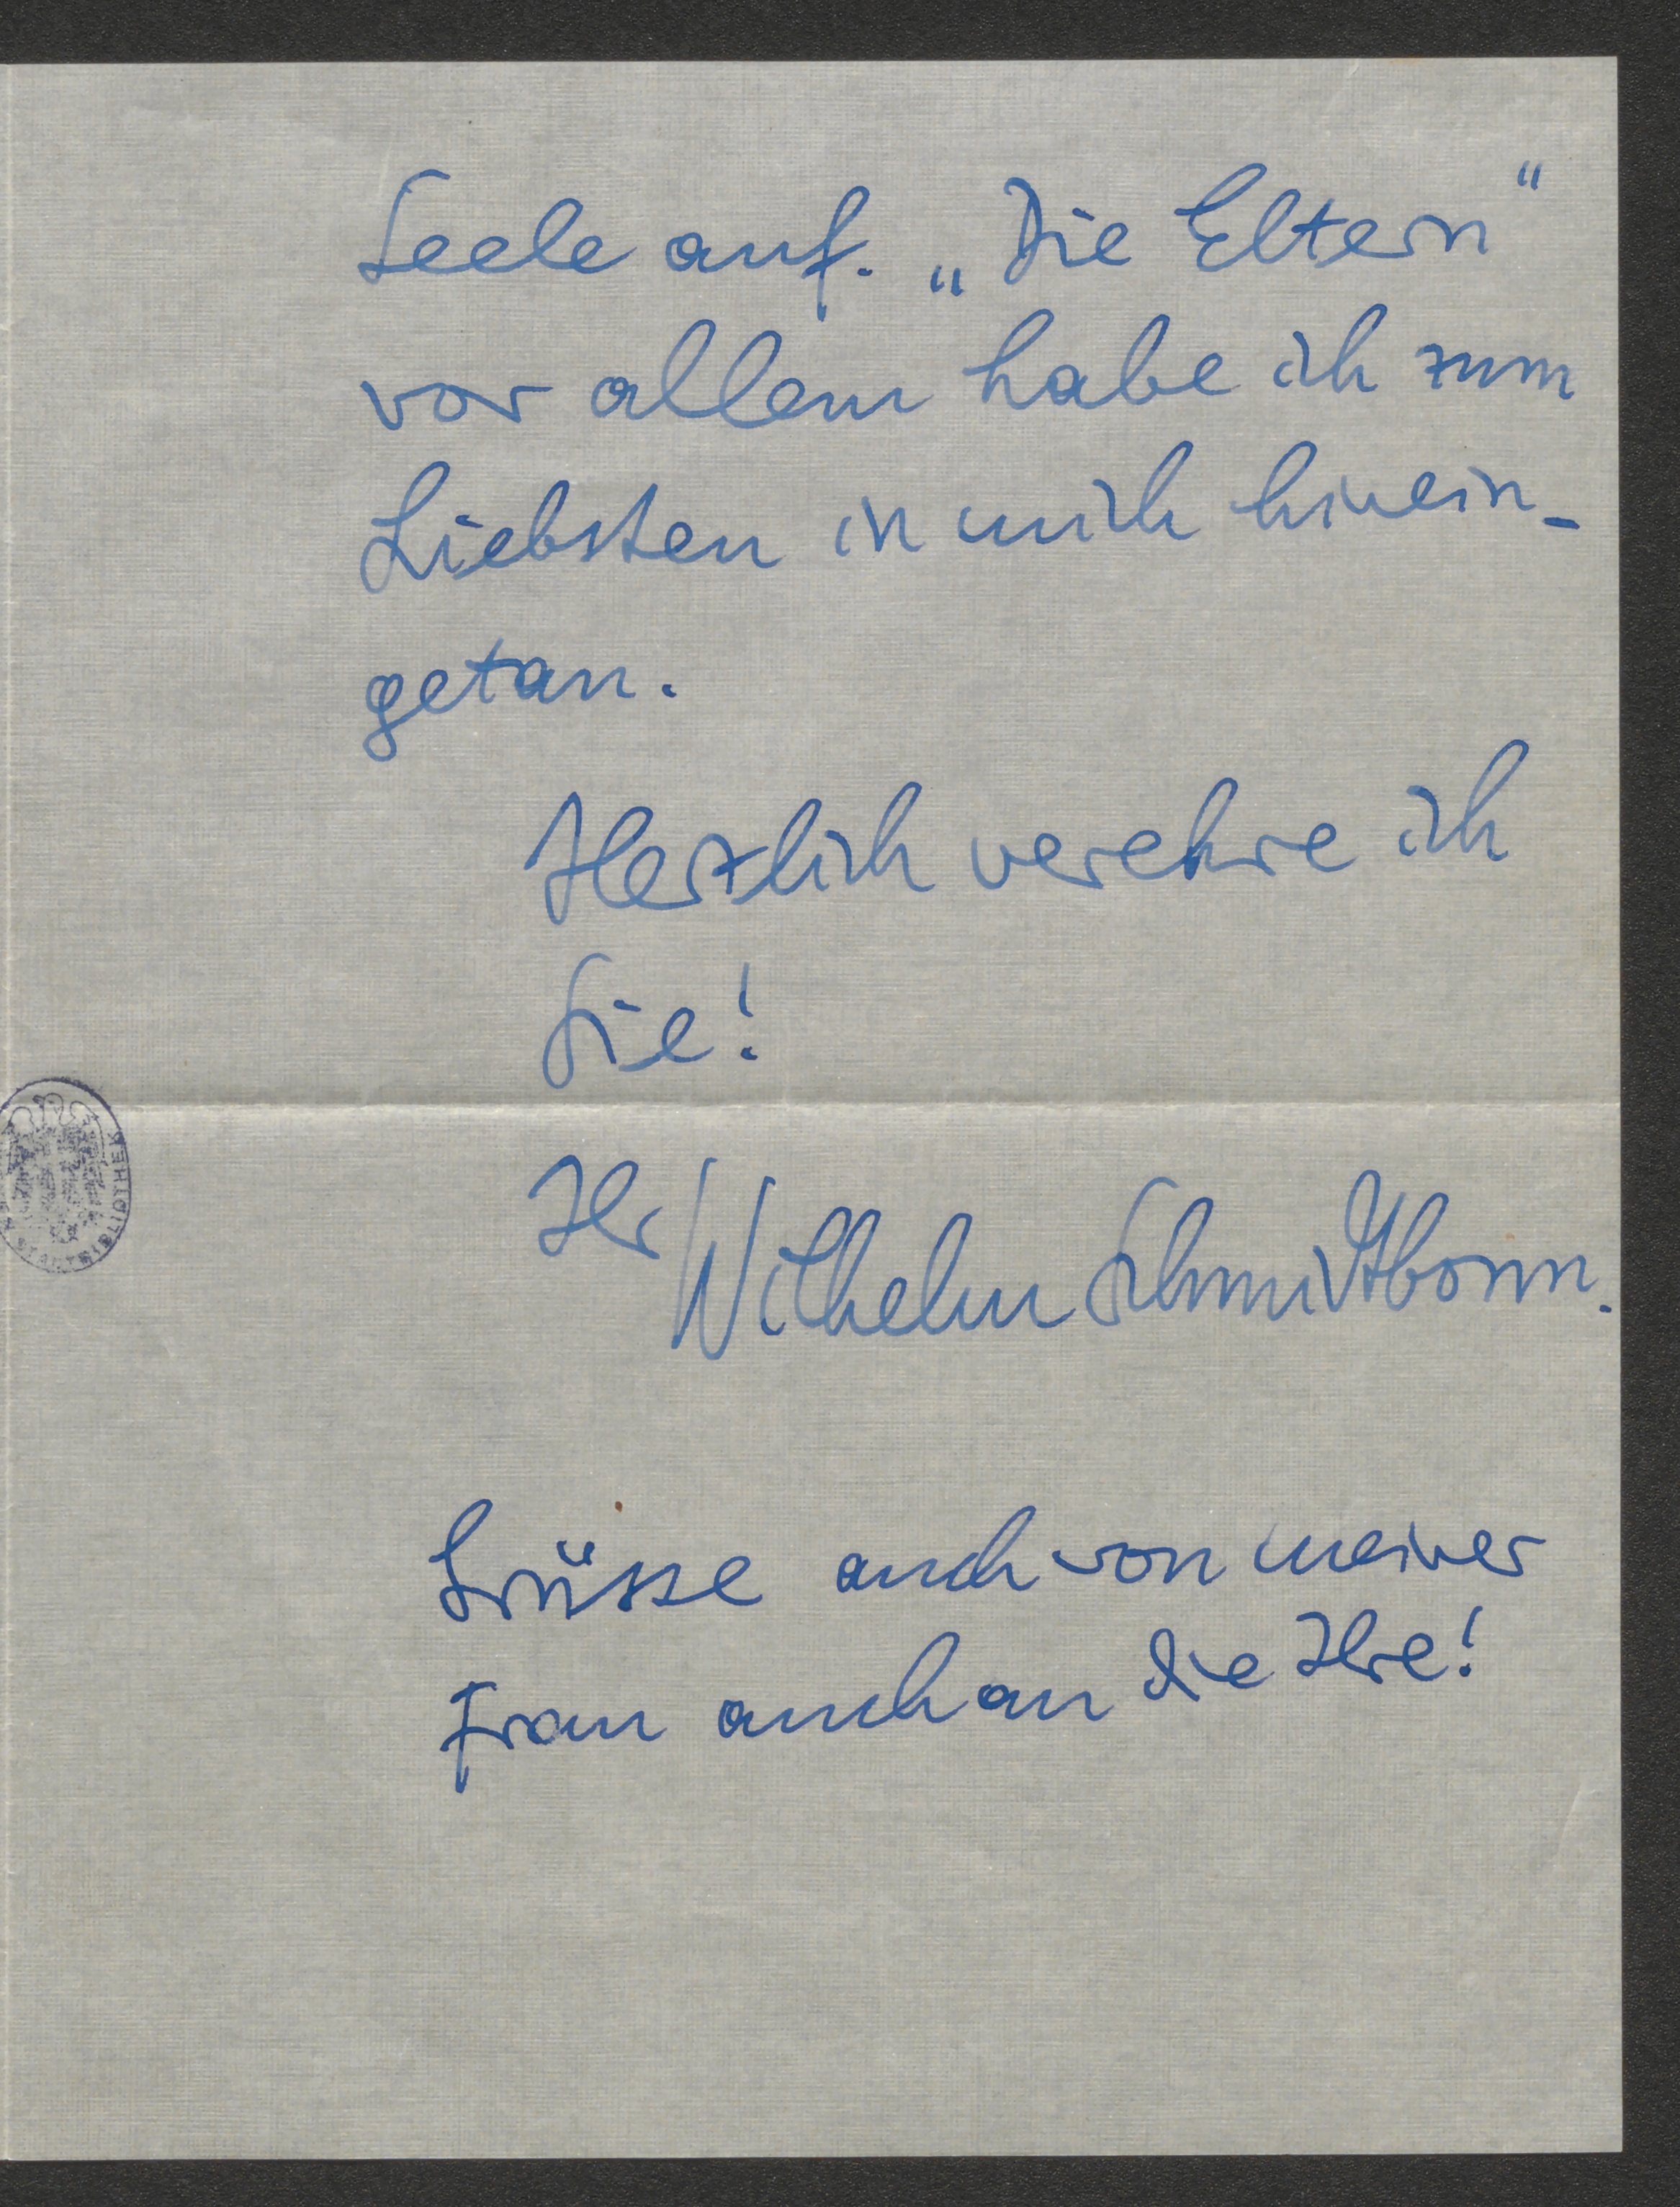 Seele auf. „Die Eltern“
vor allem habe ich zum
Liebsten in mich hinein-
getan.
Herzlich verehre ich
Sie!
Ihr Wilhelm Schmidtbonn.
Grüsse auch von meiner
Frau auch an die Ihre!